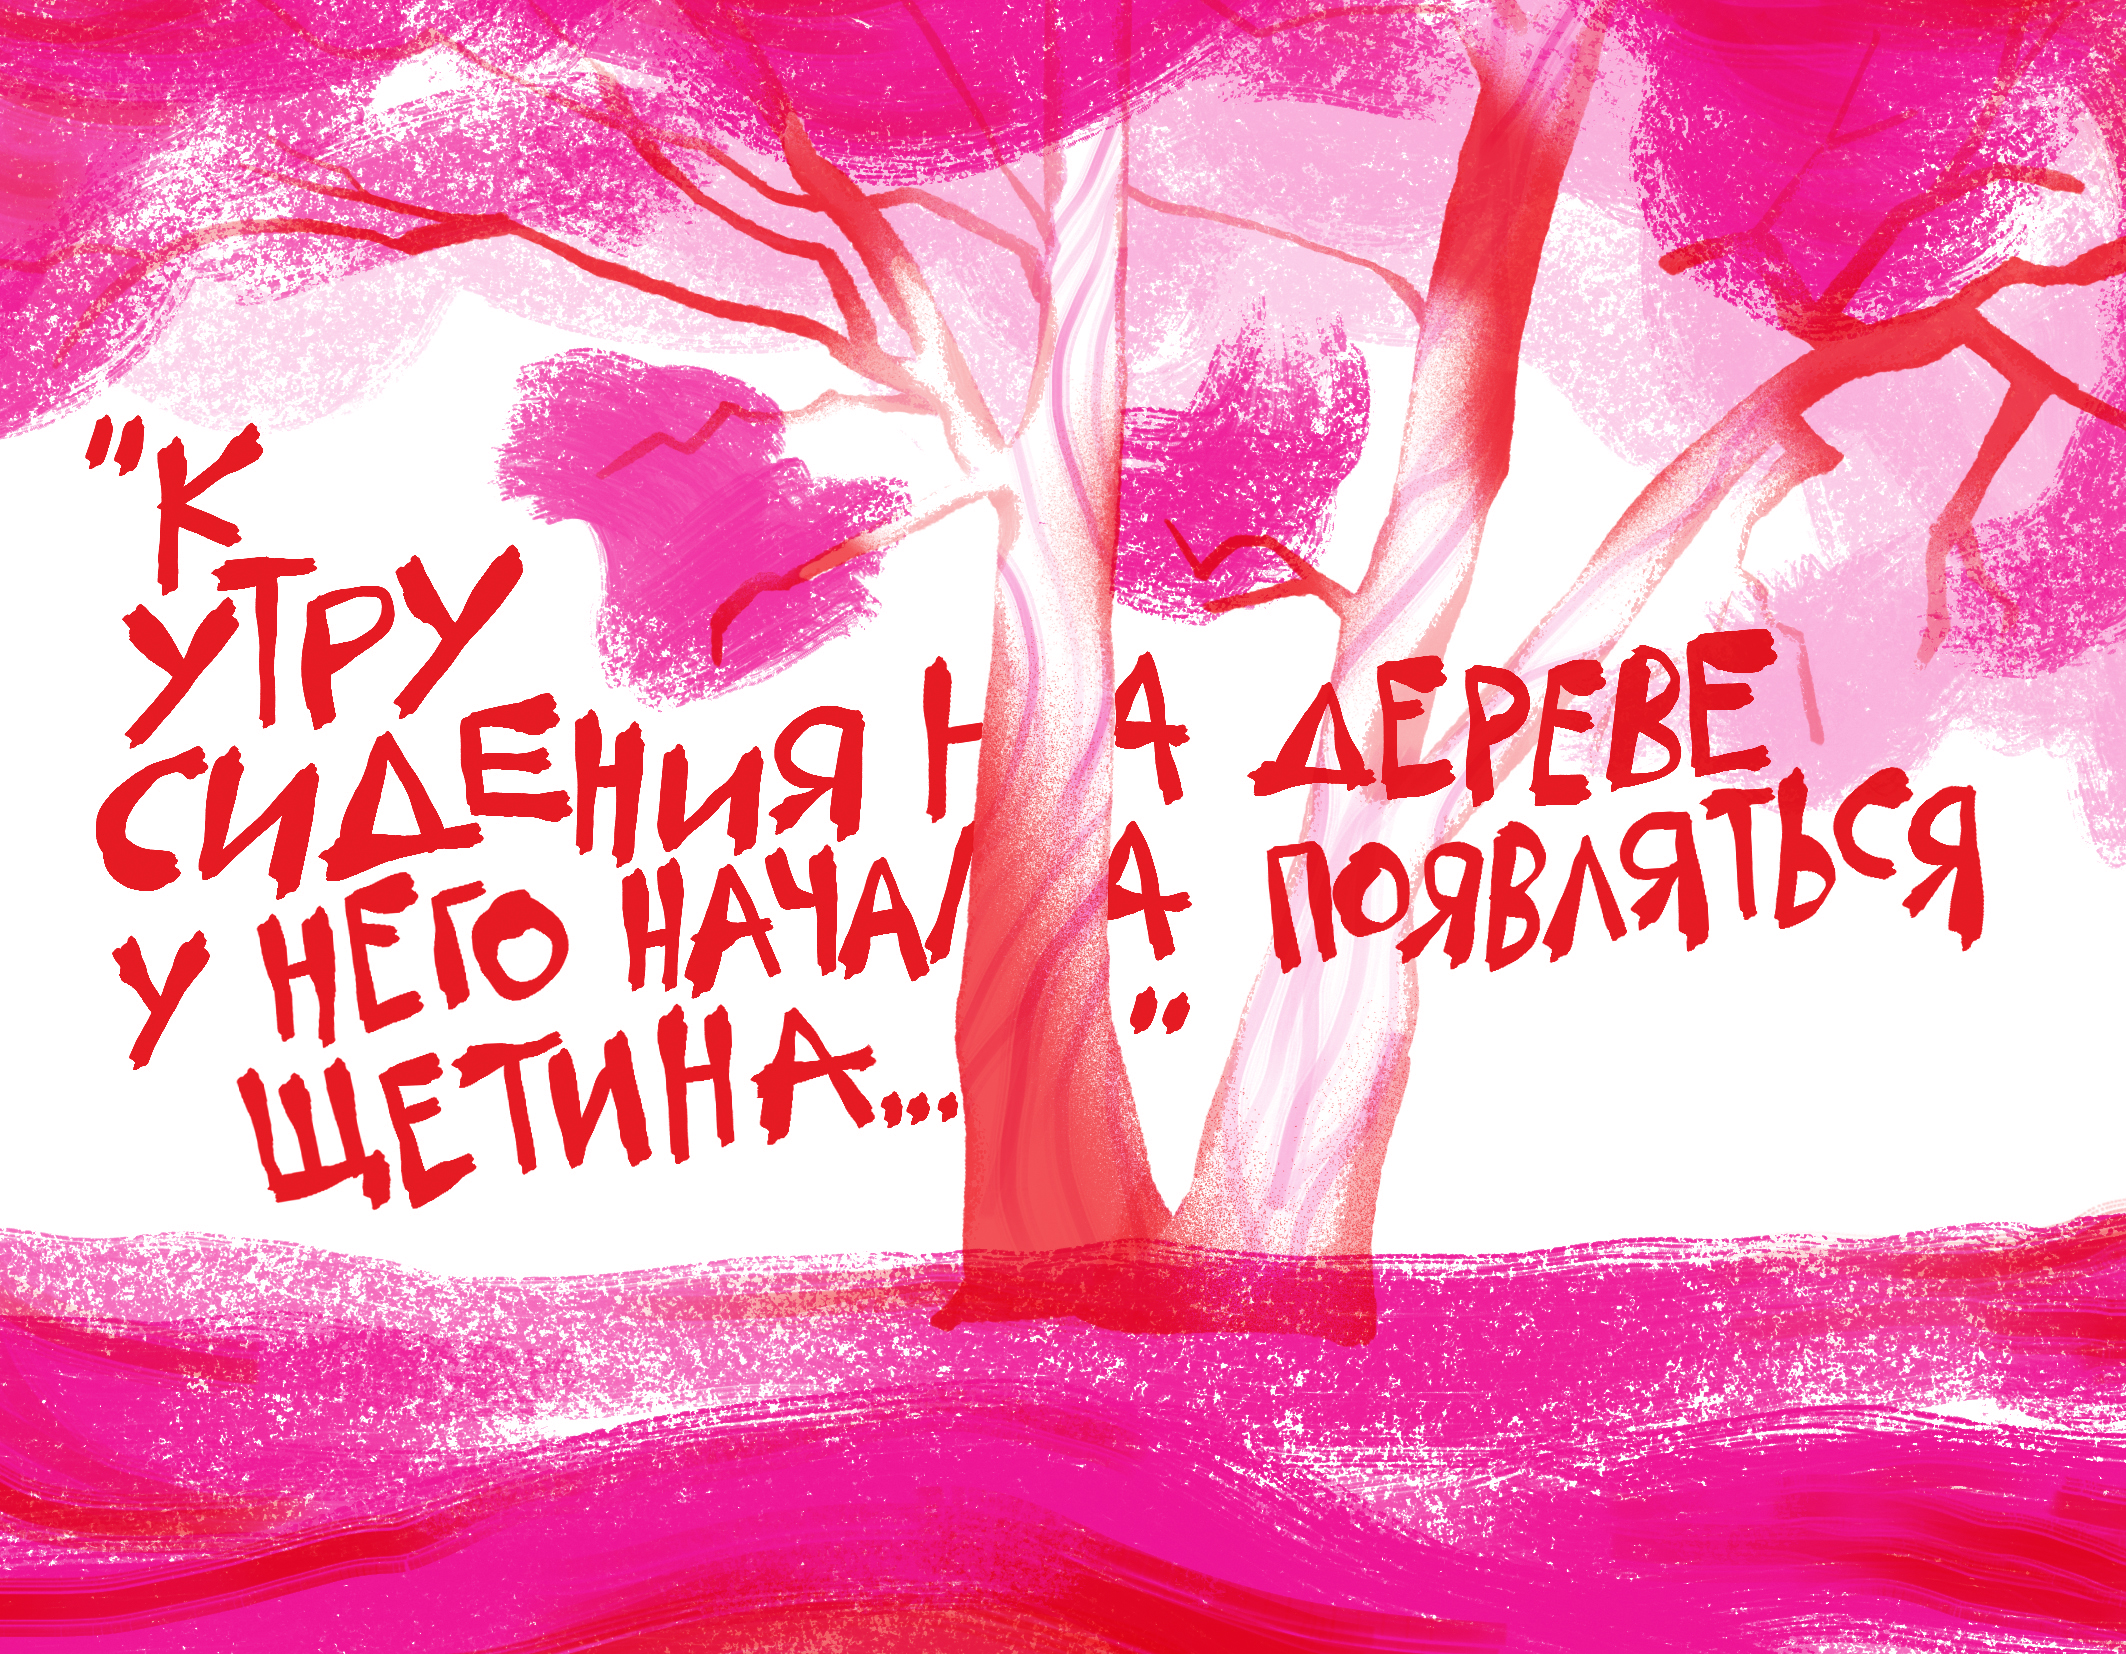 "К
УТРУ
СИДЕНИЯ НА ДЕРЕВЕ
У НЕГО НАЧАЛА ПОЯВЛЯТЬСЯ
ЩЕТИНА..."